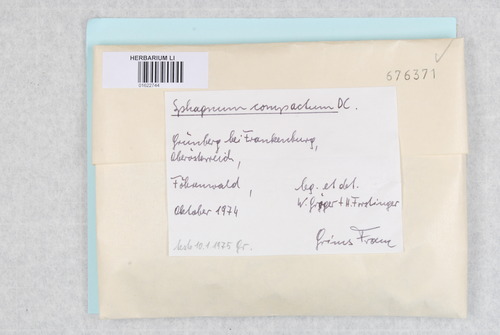 HERBARIUM LI
01622744
676371
Sphagnum compactum DC.
Grünberg bei Frankenburg,
Oberösterreich,
Föhrenwald,
leg. et det.
Oktober 1974
W. Gröger + H. Forstinger
10.1.1975 Gr.
Grims Franz